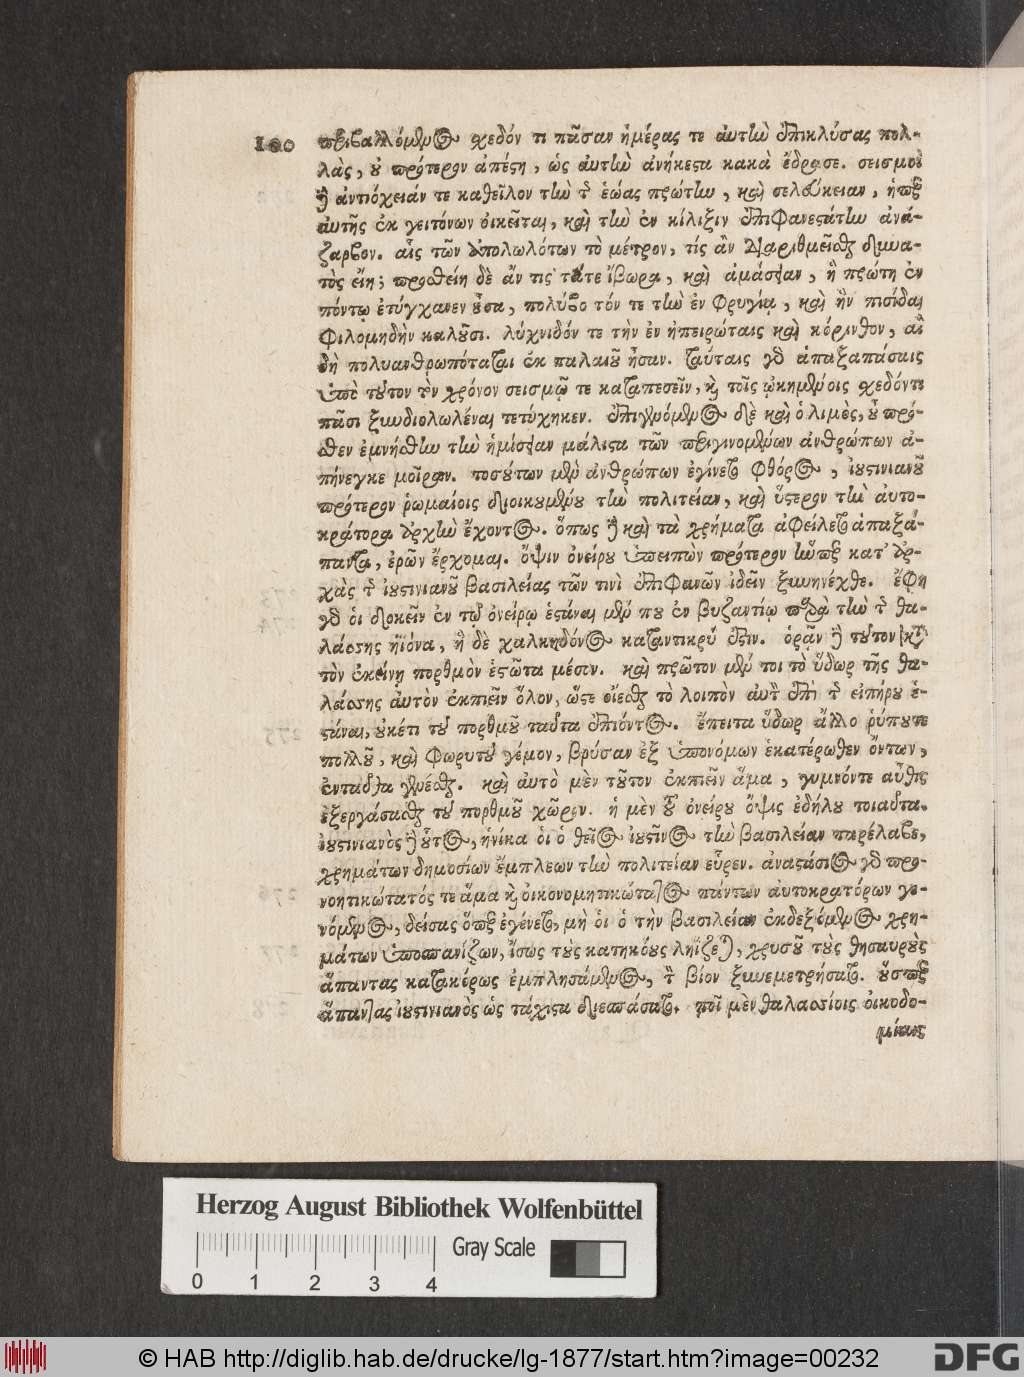 100 περιβαλλόμενος σχεδόν τι πᾶσαν ἡμέρας τε αὐτὴν ἐπικλύσας πολ-
λὰς, οὐ πρότερον ἀπέστη, ὡς αὐτὴν ἀνήκεστα κακὰ ἔδρασε. σεισμοὶ
δὲ ἀντιόχειάν τε καθεῖλον τὴν τῆς ἑώας πρώτην, καὶ σελεύκειαν, ἥπερ
αὐτῆς ἐκ γειτόνων οἰκεῖται, καὶ τὴν ἐν κίλιξιν ἐπιφανεστάτην ἀνά-
ζαρβον. αἷς τῶν ἀπολωλότων τὸ μέτρον, τίς ἂν διαριθμεῖσθαι δυνα-
τὸς εἴη; προσθείη δὲ ἄν τις ταῖς τε ἴβωρα, καὶ ἀμάσειαν, ἣ πρώτη ἐν
πόντῳ ἐτύγχανεν οὖσα, πολύβοτόν τε τὴν ἐν φρυγίᾳ, καὶ ἣν πισίδαι
φιλομηδὴν καλοῦσι. λύχνιδόν τε τὴν ἐν ἠπειρώταις καὶ κόρινθον, αἳ
δὴ πολυανθρωπόταται ἐκ παλαιοῦ ἦσαν. ταύταις γὰρ ἁπαξαπάσαις
ὑπὸ τοῦτον τὸν χρόνον σεισμῷ τε καταπεσεῖν, καὶ τοῖς ᾠκημένοις σχεδόν τε
πᾶσι ξυνδιολωλέναι τετύχηκεν. ἐπιγενόμενος δὲ καὶ ὁ λιμὸς, οὗ πρό-
σθεν ἐμνήσθην τὴν ἡμίσειαν μάλιστα τῶν περιγινομένων ἀνθρώπων ἀ-
πήνεγκε μοῖραν. τοσούτων μὲν ἀνθρώπων ἐγίνετο φθόρος, ἰουστινιανοῦ
πρότερον ῥωμαίοις διοικουμένου τὴν πολιτείαν, καὶ ὕστερον τὴν αὐτο-
κράτορα ἀρχὴν ἔχοντος. ὅπως δὲ καὶ τὰ χρήματα ἀφείλετο ἁπαξά-
παντα, ἐρῶν ἔρχομαι. ὄψιν ὀνείρου ὑπειπὼν πρότερον ἥνπερ κατ' ἀρ-
χὰς τῆς ἰουστινιανοῦ βασιλείας τῶν τινὶ ἐπιφανῶν ἰδεῖν ξυνηνέχθε. ἔφη
γὰρ οἱ δοκεῖν ἐν τῷ ὀνείρῳ ἑστάναι μέν που ἐν βυζαντίῳ παρὰ τὴν τῆς θα-
λάσσης ἠϊόνα, ἣ δὲ χαλκηδόνος καταντικρύ ἐστιν. ὁρᾷν δὲ τοῦτον κατὰ
τὸν ἐκείνῃ πορθμὸν ἑστῶτα μέσιν. καὶ πρῶτον μέν τοι τὸ ὕδωρ τῆς θα-
λάσσης αὐτὸν ἐκπιεῖν ὅλον, ὥστε οἴεσθαι τὸ λοιπὸν αὐτὸν ἐπὶ τῆς εἰπήρου ἑ-
στάναι, οὐκέτι τοῦ πορθμοῦ ταύτῃ ἐπιόντος. ἔπειτα ὕδωρ ἄλλο ῥύπου τε
πολλοῦ, καὶ φωρυτοῦ γέμον, βρύσαν ἐξ ὑπονόμων ἑκατέρωθεν ὄντων,
ἐνταῦθα γενέσθαι. καὶ αὐτὸ μὲν τοῦτον ἐκπιεῖν ἅμα, γυμνόν τε αὖθις
ἐξεργάσασθαι τοῦ πορθμοῦ χῶρον. ἡ μὲν τοῦ ὀνείρου ὄψις ἐδήλου τοιαῦτα.
ἰουστινιανὸς δὲ οὗτος, ἡνίκα οἱ ὁ θεῖος ἰουστῖνος τὴν βασιλείαν παρέλαβε,
χρημάτων δημοσίων ἔμπλεων τὴν πολιτείαν εὗρεν. ἀναστάσιος γὰρ προ-
νοητικώτατός τε ἅμα καὶ οἰκονομητικώτατος πάντων αὐτοκρατόρων γε-
νόμενος, δείσας ὅπερ ἐγένετο, μὴ οἱ ὁ τὴν βασιλείαν ἐκδεξόμενος χρη-
μάτων ὑποσπανίζων, ἴσως τοὺς κατηκόους ληΐζεται, χρυσοῦ τοὺς θησαυροὺς
ἅπαντας κατακόρως ἐμπλησάμενος, τὸν βίον ξυνεμετρήσατο. οὕσπερ
ἅπαντας ἰουστινιανὸς ὡς τάχιστα διεσπάσατο. ποῖ μὲν θαλασσίοις οἰκοδο-
μίαις
Herzog August Bibliothek Wolfenbüttel
0 1 2 3 4
Gray Scale
© HAB http://diglib.hab.de/drucke/lg-1877/start.htm?image=00232
DFG